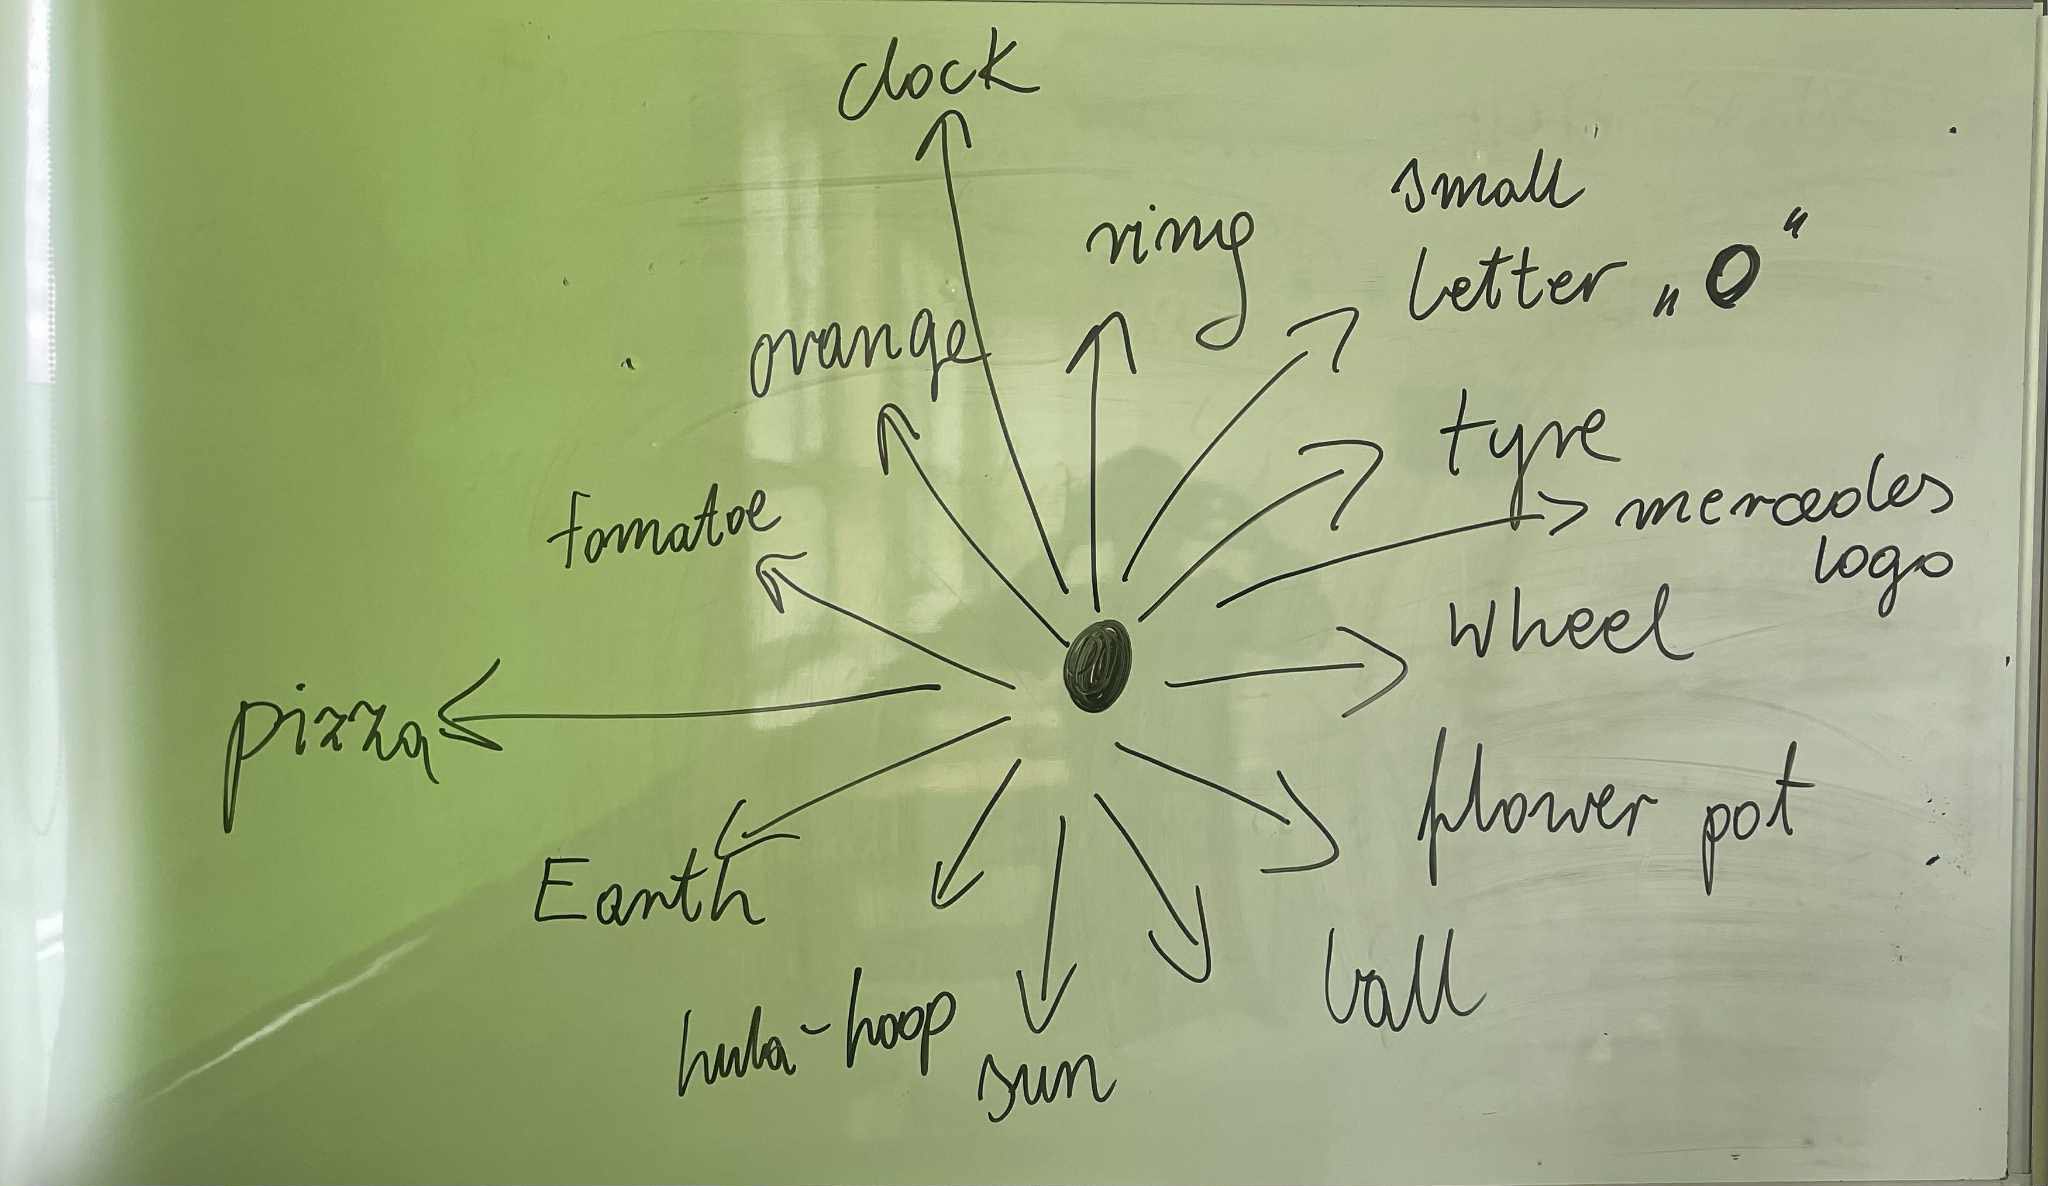 clock
ring
small
letter „o“
orange
tyre
tomatoe
mercedes
logo
wheel
pizza
flower pot
Earth
ball
hula-hoop
sun